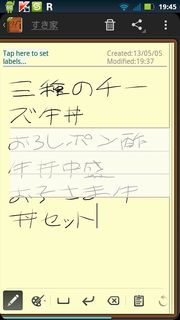 R 19:45
すき家
Tap here to set labels...
Created:13/05/05
Modified:19:37
三種のチー
ズ牛丼
おろしポン酢
牛丼中盛
お子さま牛
丼セット